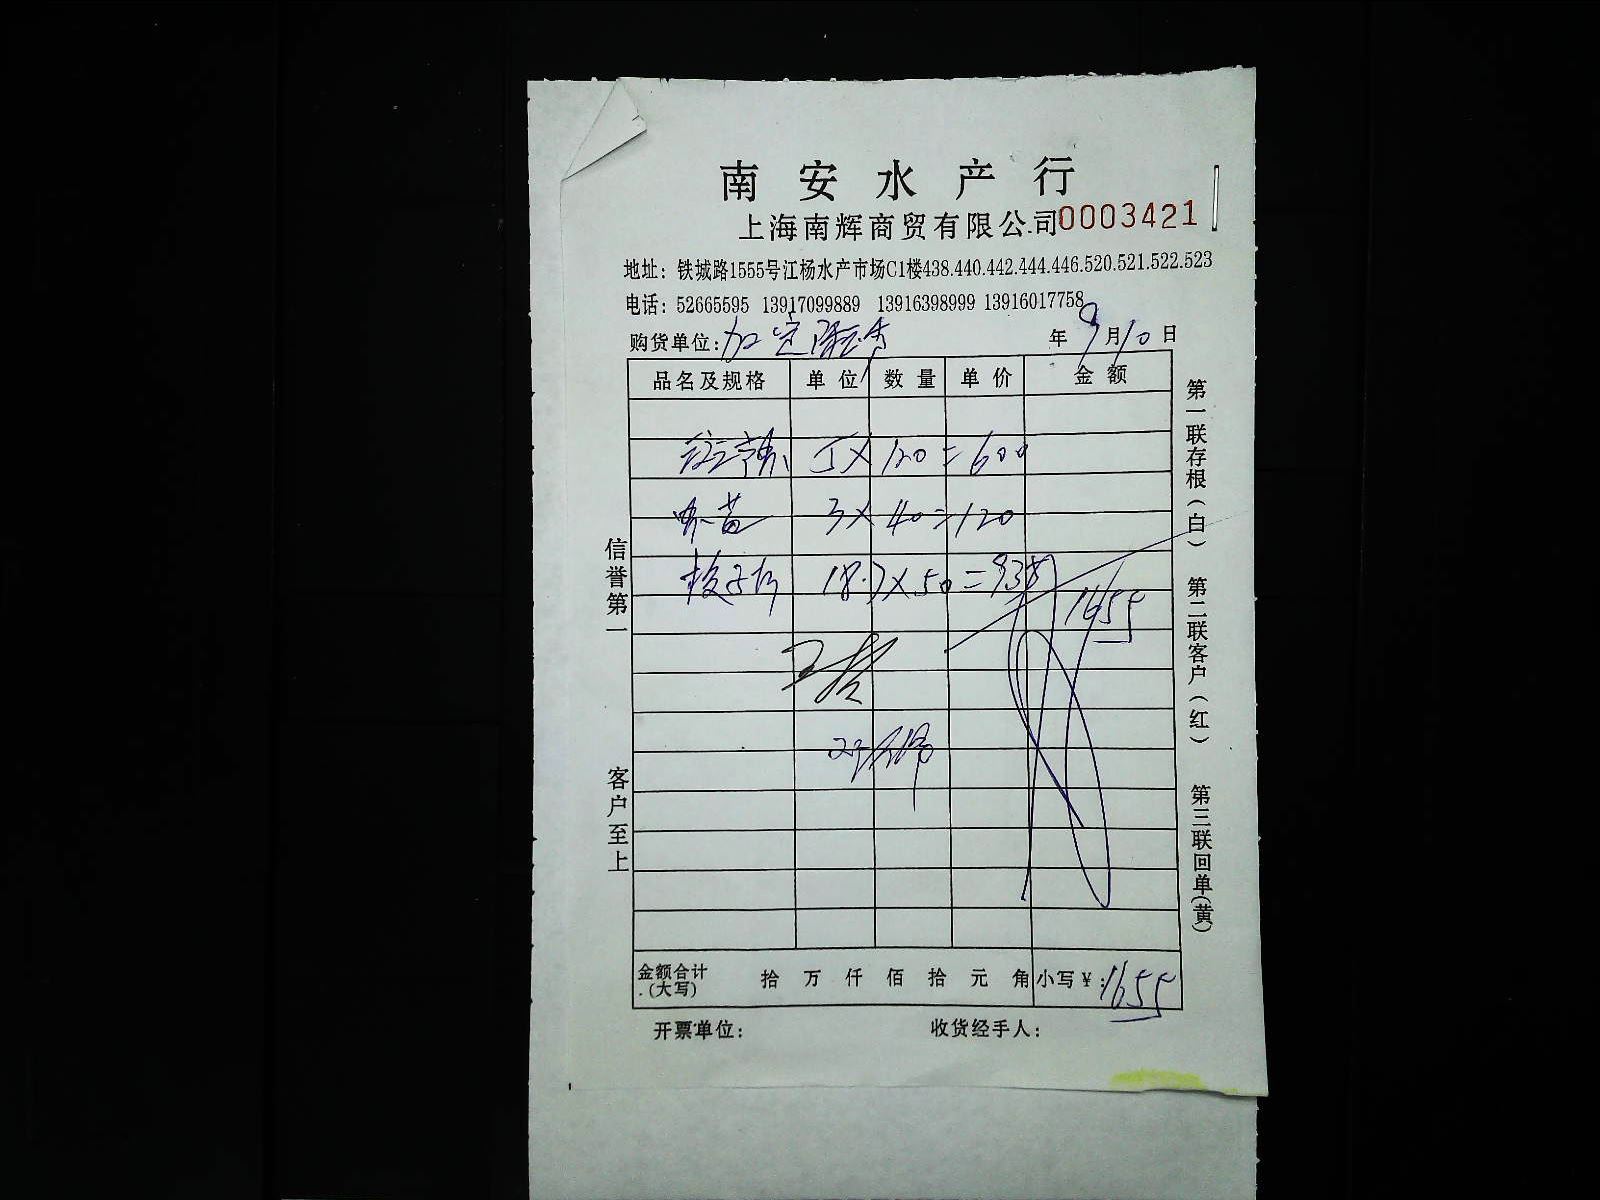 南安水产行
上海南辉商贸有限公司0003421
地址：铁城路1555号江杨水产市场C1楼438.440.442.444.446.520.521.522.523
电话：52665595 13917099889 13916398999 13916017758
购货单位： 年 9 月 10 日
品名及规格 单位 数量 单价 金额
5 × 120 = 600
3 × 40 = 120
梭子 18.7 × 50 = 935
1655
金额合计(大写) 拾 万 仟 佰 拾 元 角 小写￥：1655
开票单位： 收货经手人：
信誉第一
客户至上
第一联存根(白)
第二联客户(红)
第三联回单(黄)